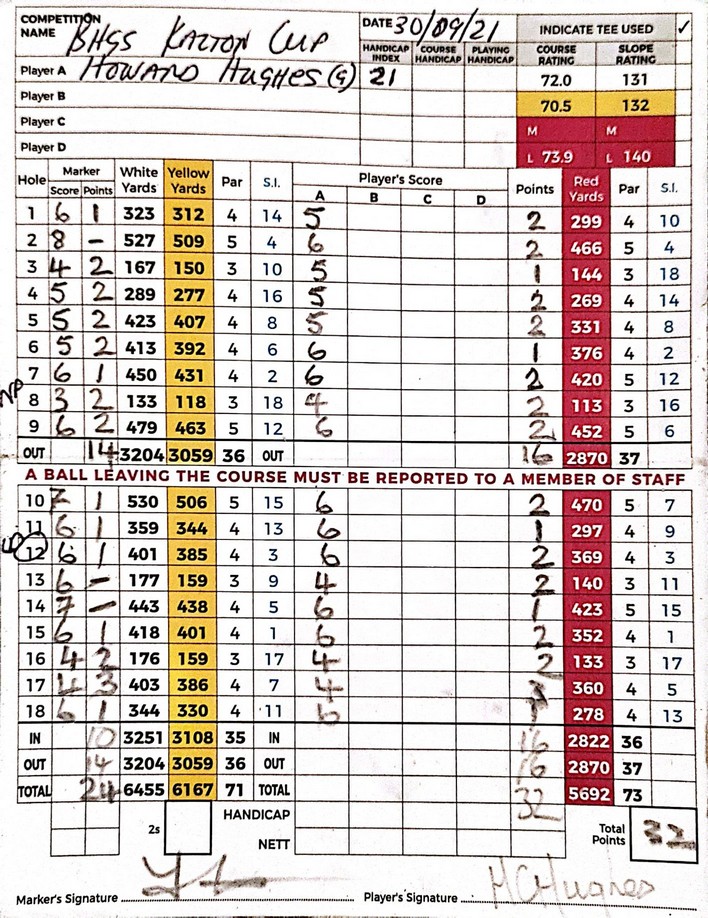 COMPETITION NAME BHGS KALTON CUP DATE 30/09/21 INDICATE TEE USED ✓
HANDICAP INDEX COURSE HANDICAP PLAYING HANDICAP COURSE RATING SLOPE RATING
Player A HOWARD HUGHES (G) 21 72.0 131
Player B 70.5 132
Player C M M
Player D L 73.9 L 140
Hole Marker White Yards Yellow Yards Par S.I. Player's Score Points Red Yards Par S.I.
Score Points A B C D
1 6 1 323 312 4 14 5 2 299 4 10
2 8 - 527 509 5 4 6 2 466 5 4
3 4 2 167 150 3 10 5 1 144 3 18
4 5 2 289 277 4 16 5 2 269 4 14
5 5 2 423 407 4 8 5 2 331 4 8
6 5 2 413 392 4 6 6 1 376 4 2
7 6 1 450 431 4 2 6 2 420 5 12
NP 8 3 2 133 118 3 18 4 2 113 3 16
9 6 2 479 463 5 12 6 2 452 5 6
OUT 14 3204 3059 36 OUT 16 2870 37
A BALL LEAVING THE COURSE MUST BE REPORTED TO A MEMBER OF STAFF
10 7 1 530 506 5 15 6 2 470 5 7
11 6 1 359 344 4 13 6 1 297 4 9
12 6 1 401 385 4 3 6 2 369 4 3
13 6 - 177 159 3 9 4 2 140 3 11
14 7 - 443 438 4 5 6 1 423 5 15
15 6 1 418 401 4 1 6 2 352 4 1
16 4 2 176 159 3 17 4 2 133 3 17
17 4 3 403 386 4 7 4 3 360 4 5
18 6 1 344 330 4 11 1 278 4 13
IN 10 3251 3108 35 IN 16 2822 36
OUT 14 3204 3059 36 OUT 16 2870 37
TOTAL 24 6455 6167 71 TOTAL 32 5692 73
2s HANDICAP Total Points 32
NETT
Marker's Signature Player's Signature HCHughes